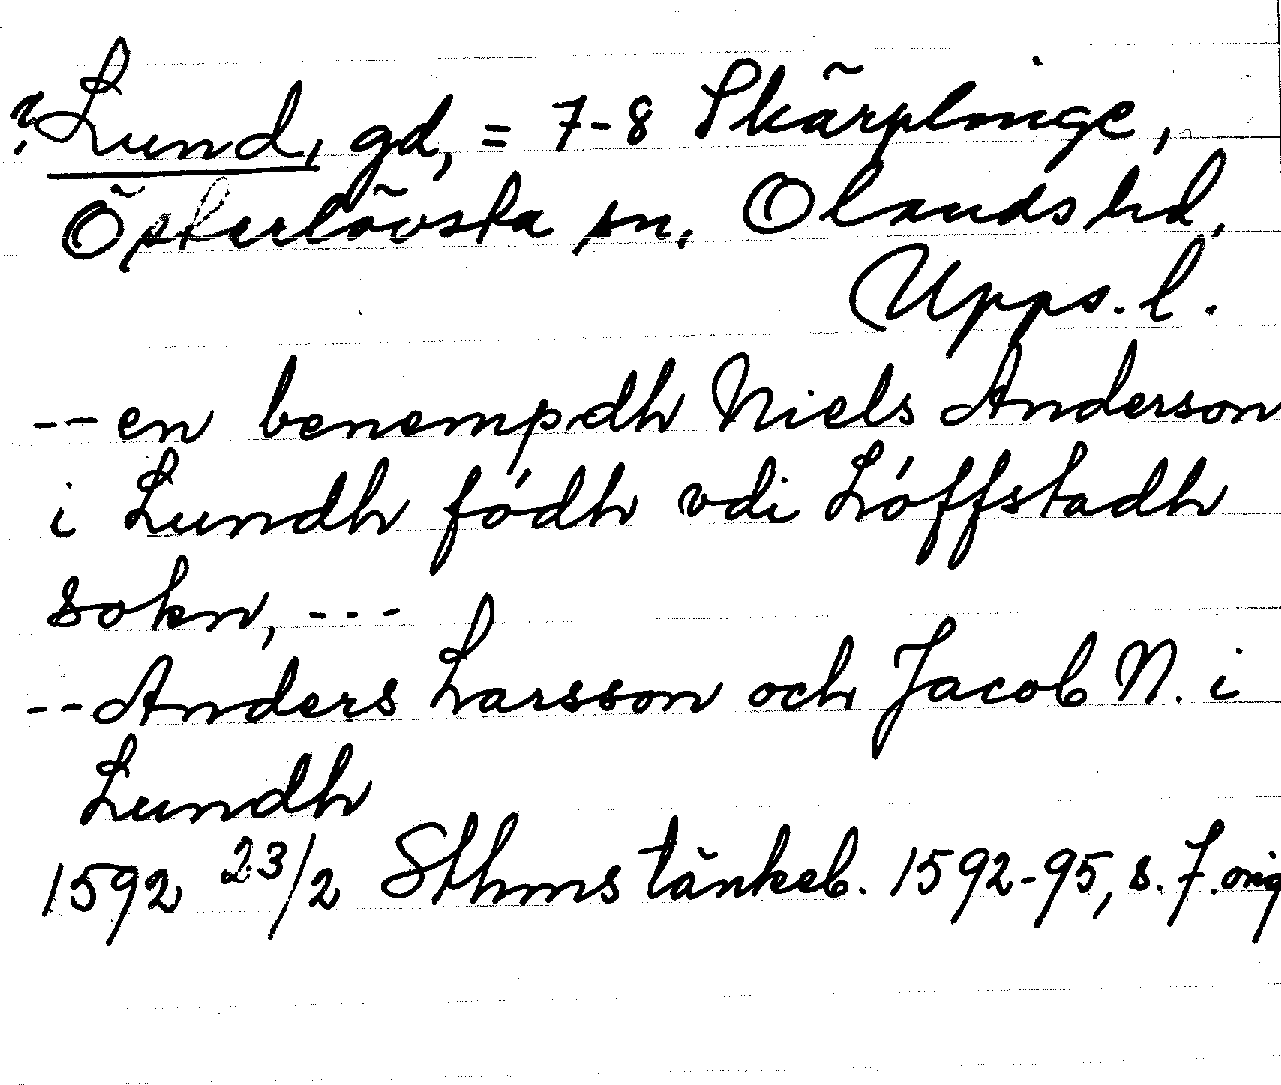 ? Lund, gd, = 7-8 Skärplinge,
Österlövsta sn. Olands hd,
Upps. l.
-- en benempdh Niels Anderson
i Lundh födh vdi Löffstadh
sokn, ---
-- Anders Larsson och Jacob N. i
Lundh
1592 23/2 Sthms tänkeb. 1592-95, s. 7. orig